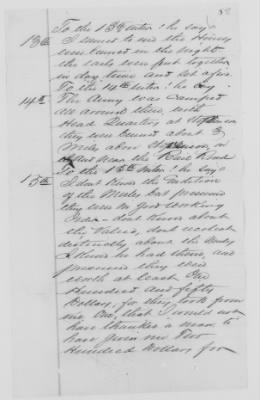 To the 13th Inter! he says
13th I cannot to
were burned in the night
the rails were put together
in day time and set afire
To the 14th Inter! he says
14th The Army was camped
all around there, with
Head Quarters at Stevenson
they were burned about 3
Miles above Stevenson, on
near the Rail Road
To the 15th Inter! he says
15th I dont know the
of the Mules, but presume
they were in good working
Order - dont know about
the Value, dont recolect
distinctly about the Mules
I know he had them, and
presume they were
worth at least One
Hundred and fifty
Dollars, for they took from
me One, that I would not
have thanked a man, to
have given me Two
Hundred Dollars for